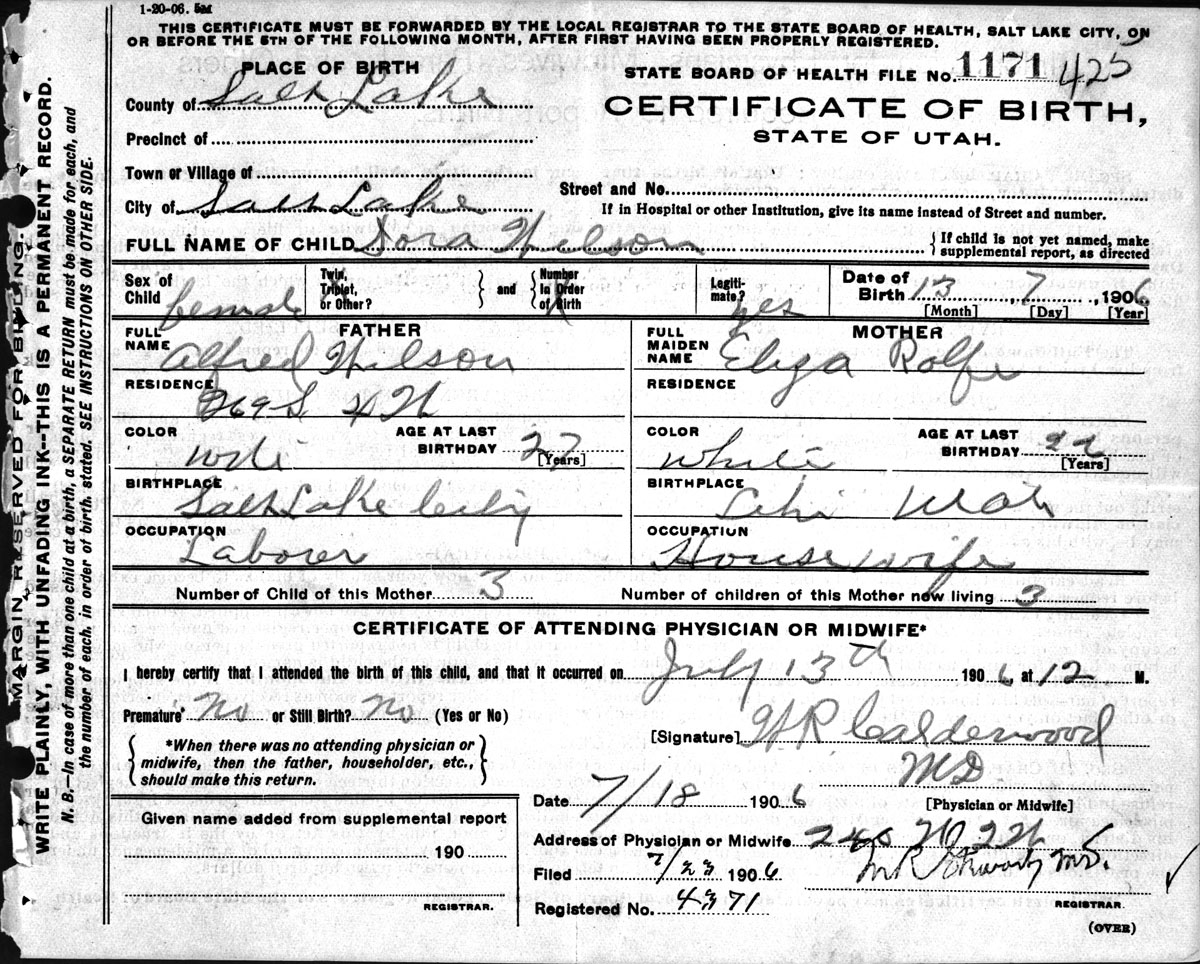 1-20-06. 5M
THIS CERTIFICATE MUST BE FORWARDED BY THE LOCAL REGISTRAR TO THE STATE BOARD OF HEALTH, SALT LAKE CITY, ON
OR BEFORE THE 5TH OF THE FOLLOWING MONTH, AFTER FIRST HAVING BEEN PROPERLY REGISTERED.
PLACE OF BIRTH
STATE BOARD OF HEALTH FILE No. 1171 425
County of Salt Lake
CERTIFICATE OF BIRTH,
STATE OF UTAH.
Precinct of
Town or Village of
Street and No.
City of Salt Lake
If in Hospital or other Institution, give its name instead of Street and number.
FULL NAME OF CHILD Dora Wilson
If child is not yet named, make
supplemental report, as directed
Sex of Child female
Twin, Triplet, or Other?
and
Number in Order of Birth
Legiti- mate? yes
Date of Birth 13, 7, 1906
[Month] [Day] [Year]
FATHER
FULL NAME Alfred Wilson
MOTHER
FULL MAIDEN NAME Eliza Rolfe
RESIDENCE 269 S 4 W
RESIDENCE
COLOR
AGE AT LAST BIRTHDAY 27 [Years]
COLOR White
AGE AT LAST BIRTHDAY 22 [Years]
BIRTHPLACE Salt Lake City
BIRTHPLACE Lehi Utah
OCCUPATION Laborer
OCCUPATION House wife
Number of Child of this Mother 3
Number of children of this Mother now living 3
CERTIFICATE OF ATTENDING PHYSICIAN OR MIDWIFE*
I hereby certify that I attended the birth of this child, and that it occurred on July 13th 1906 at 12 M.
Premature* No or Still Birth? No (Yes or No)
[Signature] W R Calderwood
MD
*When there was no attending physician or
midwife, then the father, householder, etc.,
should make this return.
Date 7/18 1906
[Physician or Midwife]
Given name added from supplemental report
190
REGISTRAR.
Address of Physician or Midwife 240
Filed 7/23 1906
M.D.
Registered No. 4371
REGISTRAR.
(OVER)
MARGIN RESERVED FOR BINDING.
WRITE PLAINLY, WITH UNFADING INK--THIS IS A PERMANENT RECORD.
N. B.—In case of more than one child at a birth, a SEPARATE RETURN must be made for each, and
the number of each, in order of birth, stated. SEE INSTRUCTIONS ON OTHER SIDE.